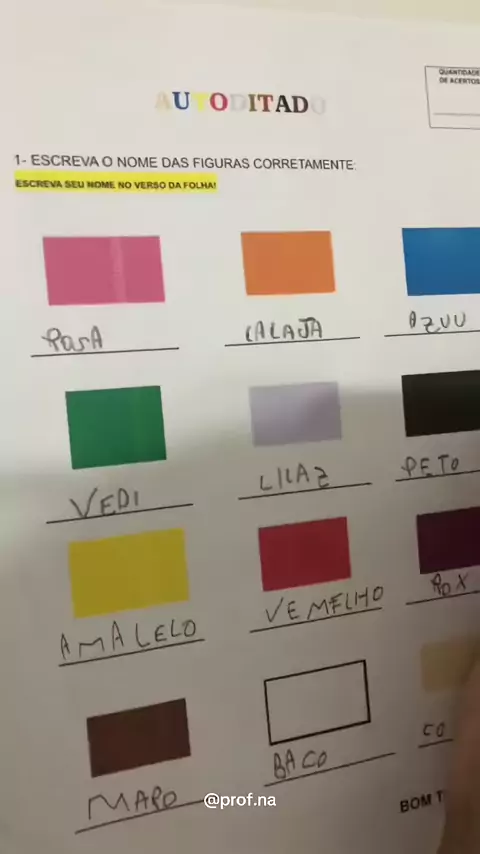 QUANTIDADE
DE ACERTOS
AUTODITADO
1- ESCREVA O NOME DAS FIGURAS CORRETAMENTE:
ESCREVA SEU NOME NO VERSO DA FOLHA!
ROSA LALAJA AZUU
VEDI LILAZ PETO
AMALELO VEMELHO ROX
MARO BACO CO
@prof.na
BOM T